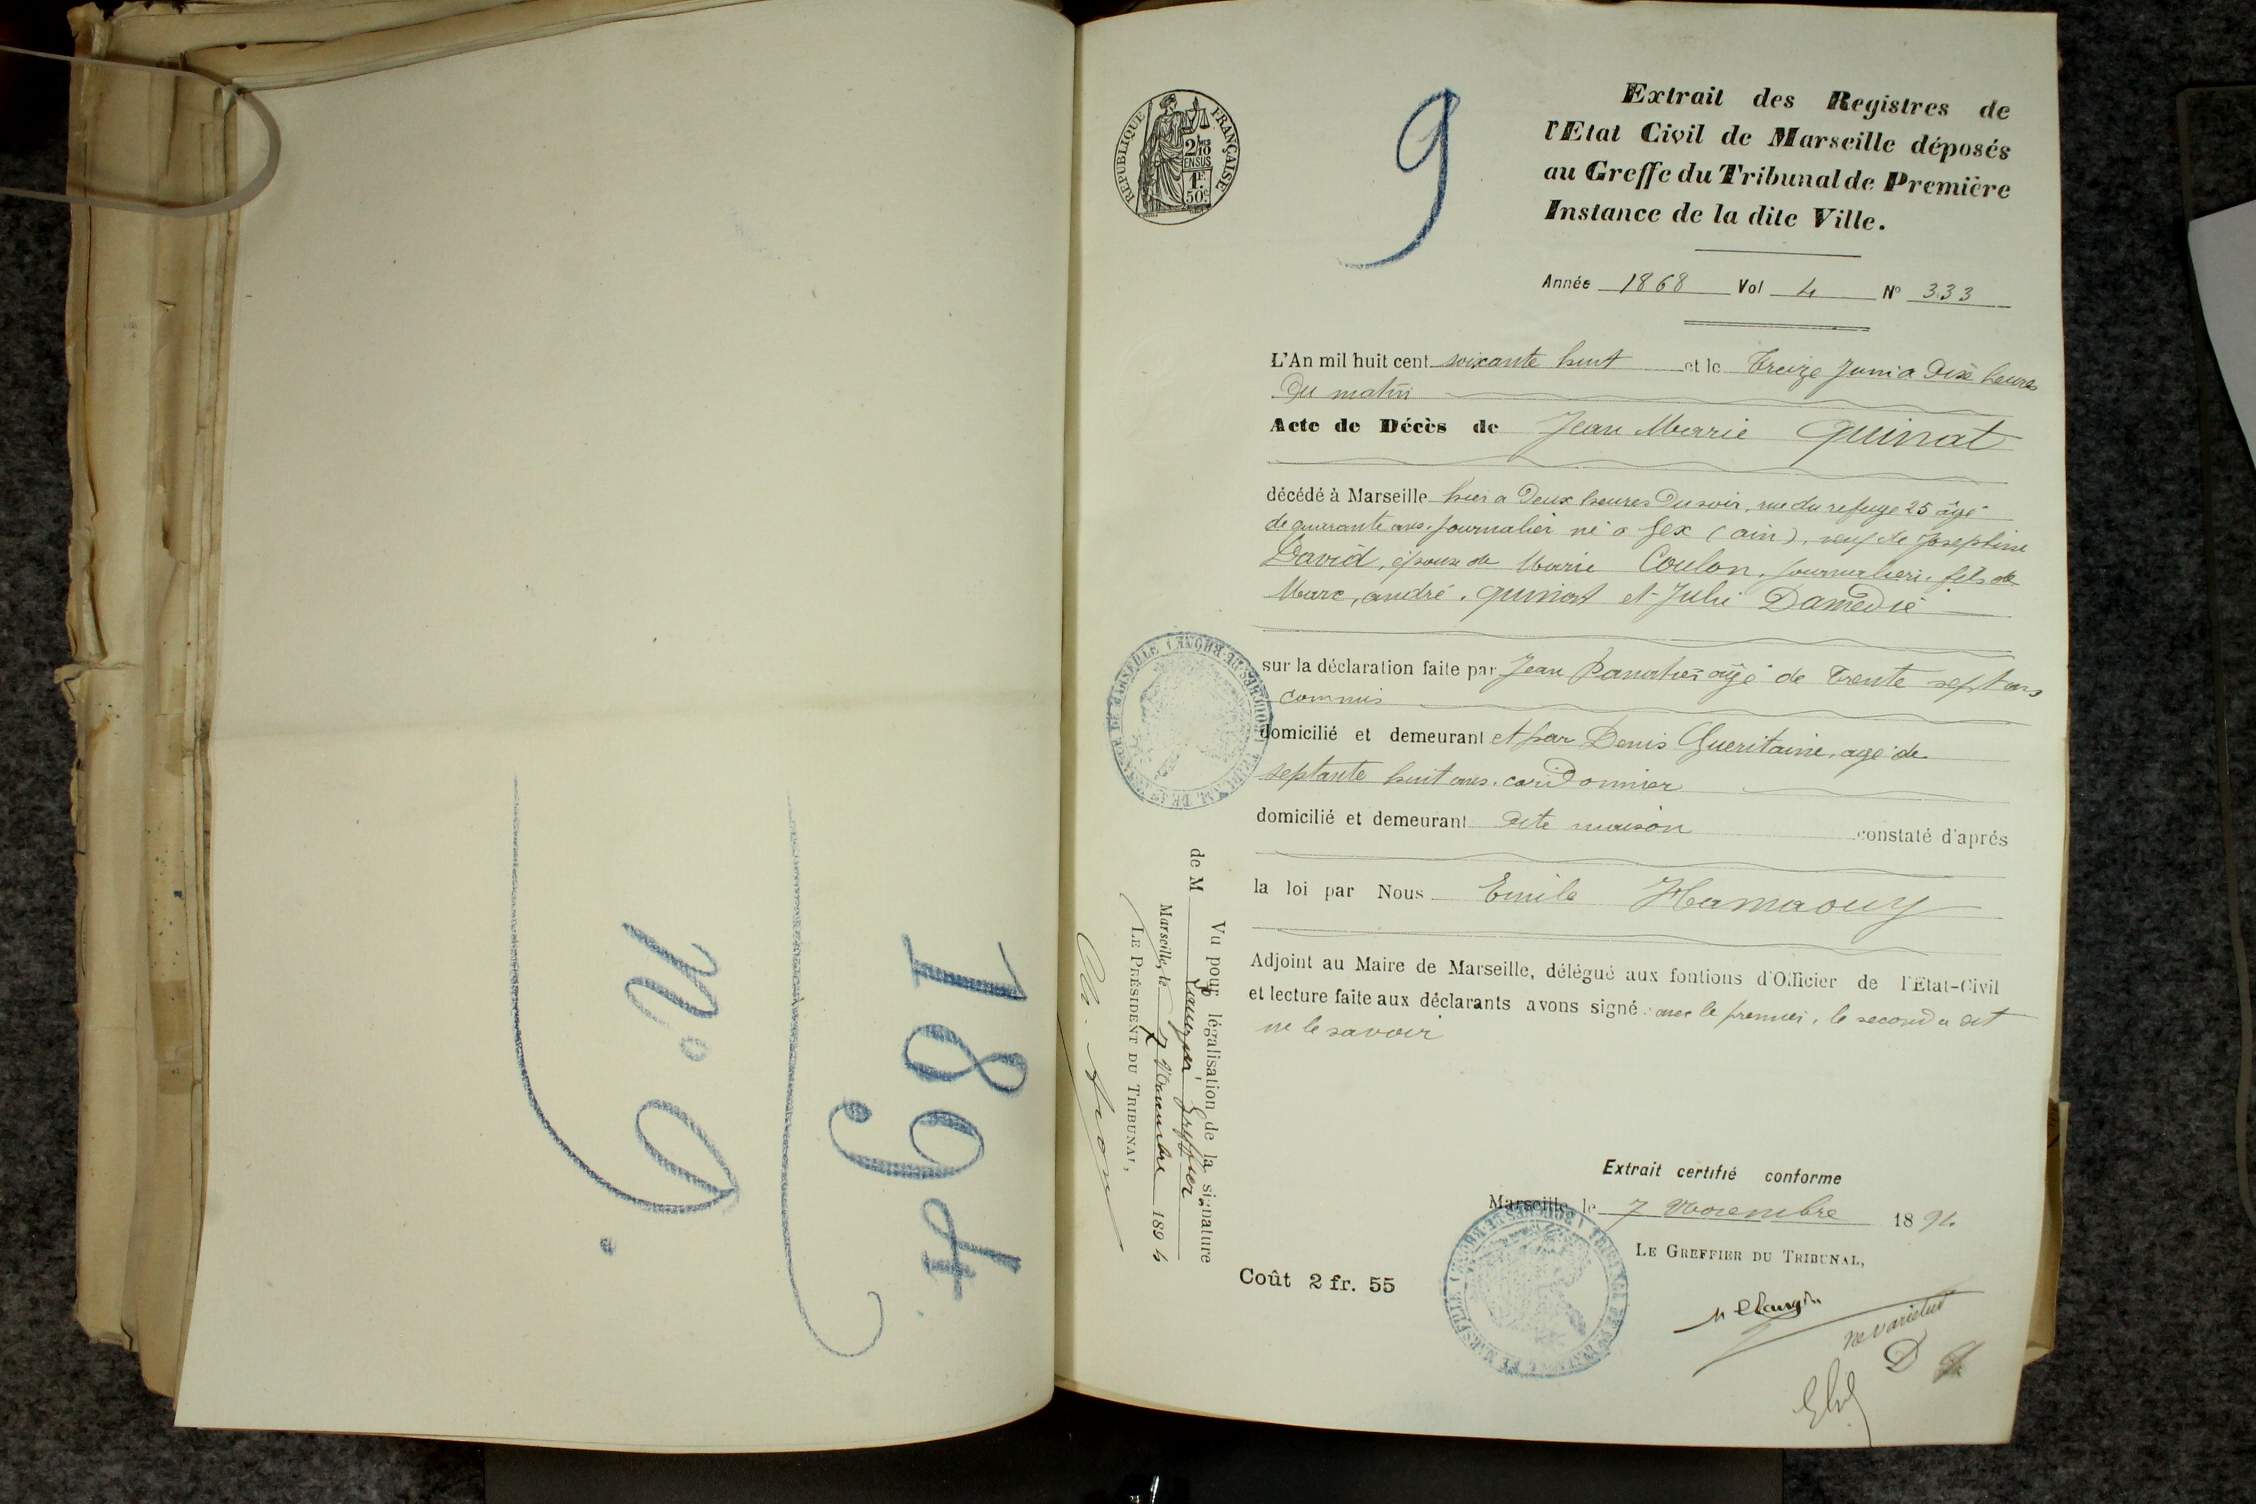 1894
n.o 9.
RÉPUBLIQUE FRANÇAISE
2/10
EN SUS
1F.
50C.
9
Extrait des Registres de
l'Etat Civil de Marseille déposés
au Greffe du Tribunal de Première
Instance de la dite Ville.
Année 1868 Vol 4 N° 333
L'An mil huit cent soixante huit et le Treize Juin a Dix heures
Du matin
Acte de Décès de Jean Marie Quinat
décédé à Marseille hier a Deux heures Du soir, rue du refuge 25 âgé
de quarante ans, journalier né a Gex (ain), veuf de Josephine
David, époux de Marie Coulon, journaliere, fils de
Marc, andré, quinat et Julie Damedié
sur la déclaration faite par Jean âgé de Trente sept ans
commis
domicilié et demeurant et par Denis Gueritaine, agé de
septante huit ans, cordonnier
domicilié et demeurant dite maison constaté d'aprés
la loi par Nous Emile Hamaouy
Adjoint au Maire de Marseille, délégué aux fontions d'Officier de l'Etat-Civil
et lecture faite aux déclarants avons signé avec le premier, le second a dit
ne le savoir
Vu pour légalisation de la signature
de M Greffier
Marseille, le 7 Novembre 1894
LE PRÉSIDENT DU TRIBUNAL,
Extrait certifié conforme
Marseille, le 7 Novembre 1894
LE GREFFIER DU TRIBUNAL,
Coût 2 fr. 55
Ne varietur
D